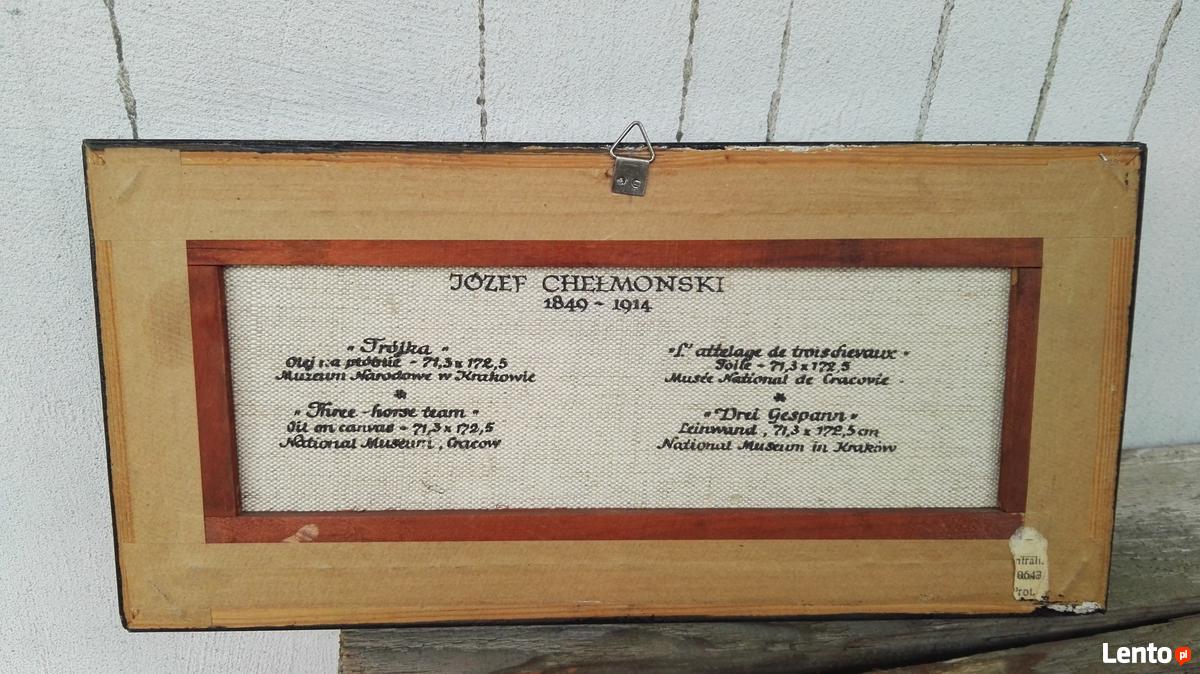 JÓZEF CHEŁMOŃSKI
1849 - 1914
"Trójka"
Olej na płótnie - 71,3 x 172,5
Muzeum Narodowe w Krakowie
*
"Three - horse team"
Oil on canvas - 71,3 x 172,5
National Museum, Cracow
"L'attelage de trois chevaux"
Toile - 71,3 x 172,5
Musée National de Cracovie
*
"Drei Gespann"
Leinwand, 71,3 x 172,5 cm
National Museum in Kraków
ntrali.
0643
Prot.
Lento pl